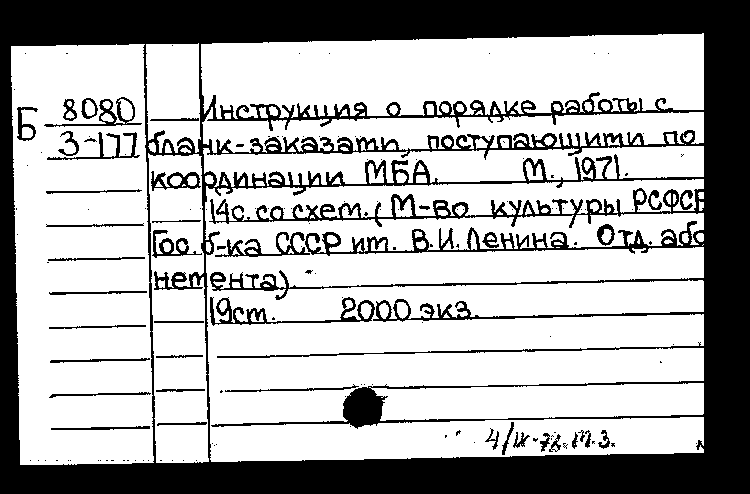 Б 8080 Инструкция о порядке работы с
З-177 бланк-заказами, поступающими по
координации МБА. М., 1971.
14с. со схем. (М-во культуры РСФСР
Гос. б-ка СССР им. В.И. Ленина. Отд. або
немента).
19ст. 2000 экз.
4/IX-72. М.З.